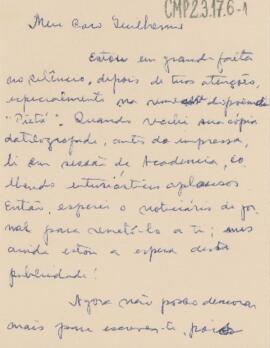 CMP2.3.17.6-1
Meu caro Guilherme
Estou em grande falta
no silêncio, depois de tuas atenções,
especialmente na
"Pietá". Quando recebi sua cópia
datilografada, antes da impressa,
li em sessão da Academia, co
lhendo entusiásticos aplausos.
Então, esperei o noticiário de jor
nal para remetê-lo a ti; mas
ainda estou a espera desta
publicidade!
Agora não posso demorar
mais para escrever-te, pois